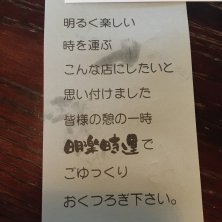 明るく楽しい
時を運ぶ
こんな店にしたいと
思い付けました
皆様の憩の一時
明楽時運で
ごゆっくり
おくつろぎ下さい。